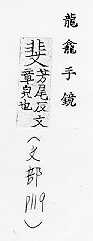 龍龕手鏡
斐芳尾反文
章皃也
(文部P119)